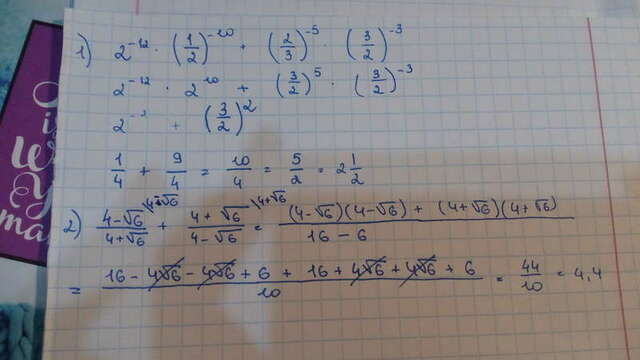 1) 2⁻¹² · (1/2)⁻¹⁰ + (2/3)⁻⁵ · (3/2)⁻³
2⁻¹² · 2¹⁰ + (3/2)⁵ · (3/2)⁻³
2⁻² + (3/2)²
1/4 + 9/4 = 10/4 = 5/2 = 2 1/2
2) (4-√6)/(4+√6) \4-√6 + (4+√6)/(4-√6) \4+√6 = ((4-√6)(4-√6) + (4+√6)(4+√6))/(16-6)
= (16 - 4√6 - 4√6 + 6 + 16 + 4√6 + 4√6 + 6)/10 = 44/10 = 4,4